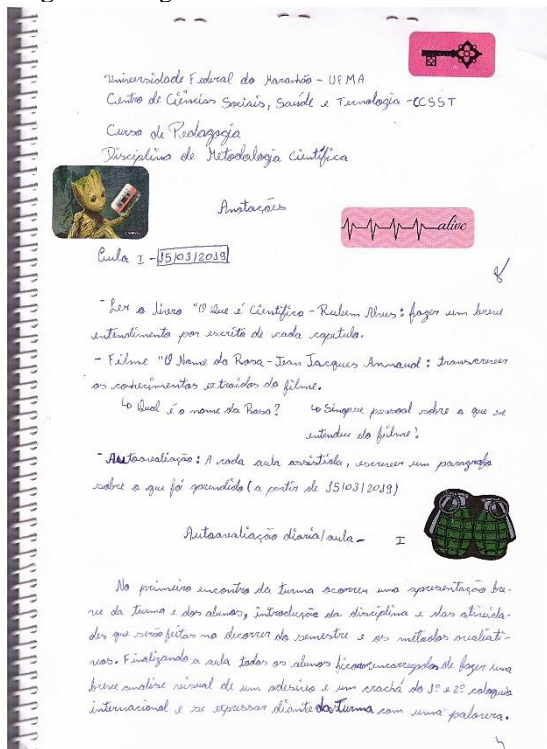 Universidade Federal do Maranhão - UFMA
Centro de Ciências Sociais, Saúde e Tecnologia - CCSST
Curso de Pedagogia
Disciplina de Metodologia Científica
Anotações
alive
Aula I - 15/03/2019
- Ler o livro "O Que é Científico - Rubem Alves: fazer um breve
entendimento por escrito de cada capítulo.
- Filme "O Nome da Rosa - Jean Jacques Annaud: transcrever
os conhecimentos extraídos do filme.
↳ Qual é o nome da Rosa? ↳ Sinopse pessoal sobre o que se
entendeu do filme!
- Autoavaliação: A cada aula assistida, escrever um paragrafo
sobre o que foi aprendido (a partir de 15/03/2019)
Autoavaliação diária/aula - I
No primeiro encontro da turma ocorreu uma apresentação bre-
ve da turma e dos alunos, introdução da disciplina e das ativida-
des que serão feitas no decorrer do semestre e os métodos avaliati-
vos. Finalizando a aula todos os alunos ficaram encarregados de fazer uma
breve analise visual de um adesivo e um crachá do 1º e 2º coloquio
internacional e se expressar diante da turma com uma palavra.